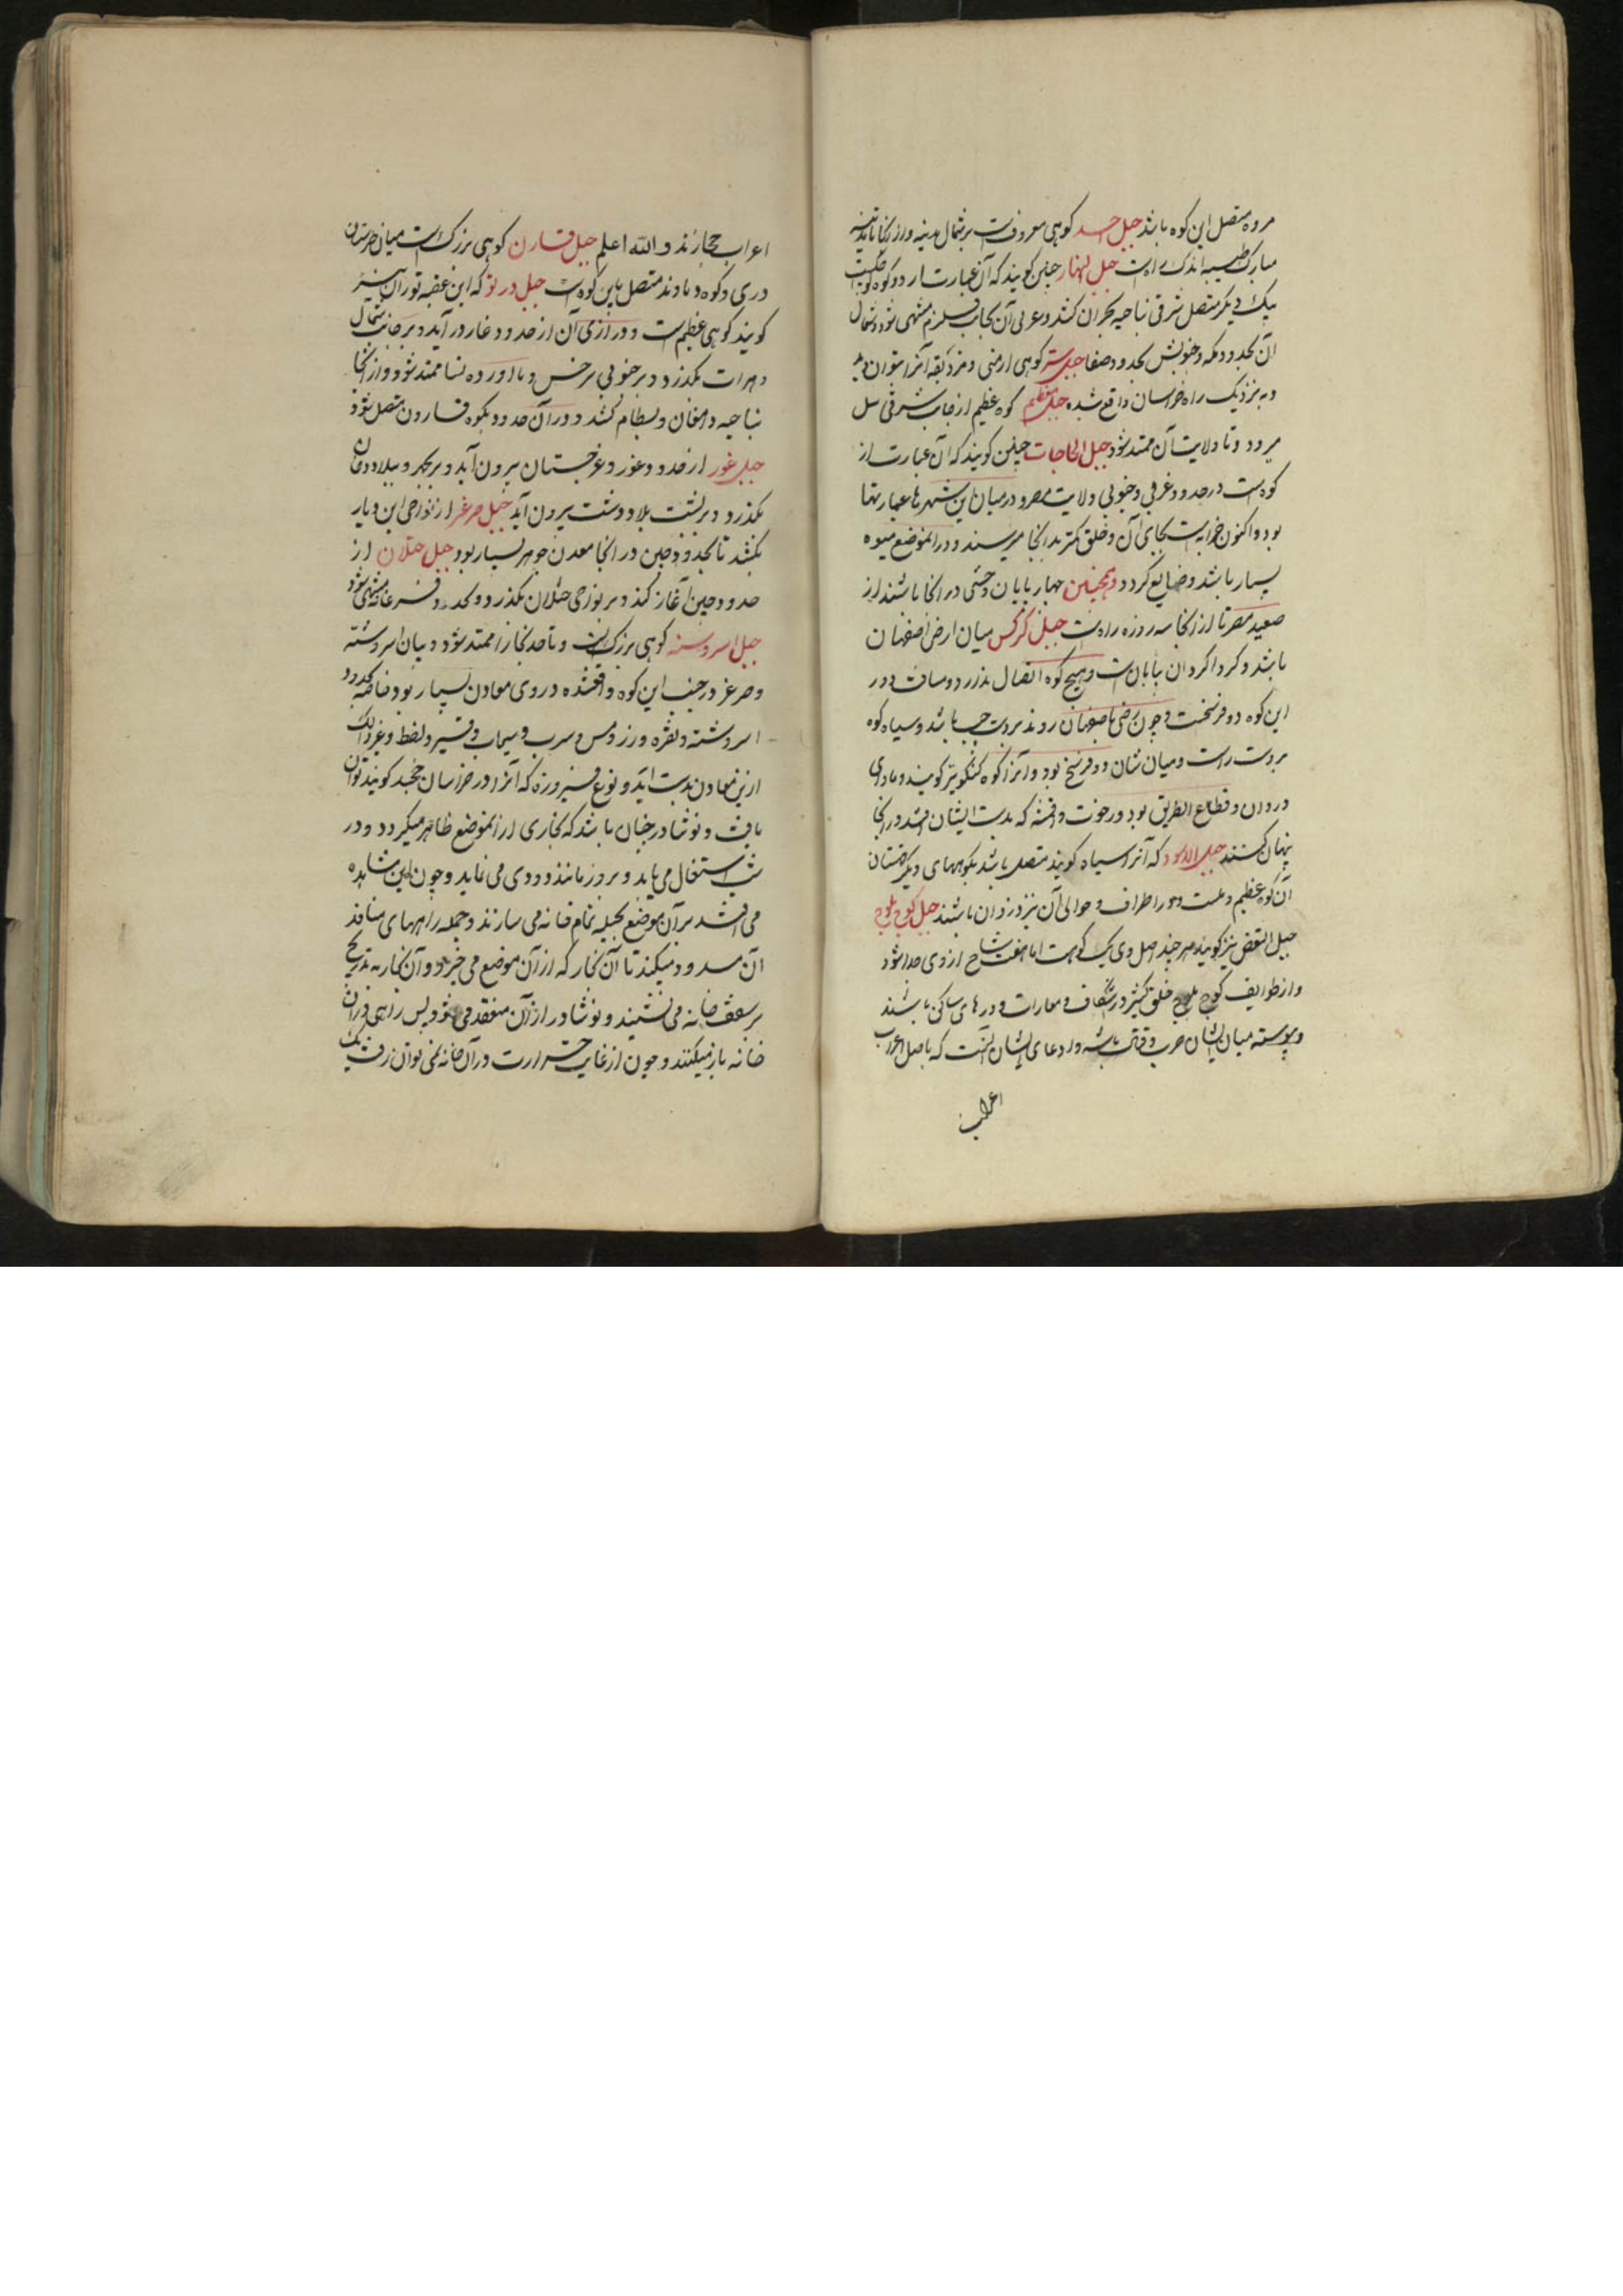 مروه متصل این کوه باشد جبل احد کوهی معروفست بر شمال مدینه و از آنجا تا مدینه
مبارک طیبه اندک راهست جبل النهار چنین کویند که آن عبارت از دو کوه است
یک دیکر متصل شرقی ناحیه بحران کشد و غربی آن بجانب قلزم منتهی شود و شمال
آن بحدود مکه و جنوبش بحدود صفا جبل کوهی ارمنی
و به نزدیک راه خراسان واقع شده جبل مقطم کوه عظیم از جانب شرقی نیل
میرود و تا ولایت آن ممتد شود جبل الحاجات چنین کویند که آن عبارت از
کوه است در حدود غربی و جنوبی ولایت مصر و در میان این شهرها عمارتها
بوده اکنون خرابه است بجای آن و خلق کمتر بدانجا میرسند و در آنموضع میوه
بسیار باشد و ضایع کردد و همچنین چهار پایان وحشی در آنجا باشند از
صعید مصر تا از آنجا سه روزه راهست جبل کرکس میان ارض اصفهان
باشد و کرد اکرد آن بیابان است و هیچ کوه اتصال ندارد و مسافت دور
این کوه دو فرسخست و چون از ری باصفهان روند بر دست چپ باشد و سیاه کوه
بر دست راست و میان شان دو فرسخ بود و آنرا کوه نیز کویند و ماوای
دزدان و قطاع الطریق بود و رخوت و اقمشه که بدست ایشان افتد در آنجا
پنهان کنند جبل الاسود که آنرا سیاه کویند متصل باشد بکوههای دیکر
آن کوه عظیم و در اطراف و حوالی آن نیز دزدان باشند جبل کوج بلوج
جبل القفص نیز کویند هر چند اصل وی یک کوهست اما هفت شاخ از وی جدا شود
و از طوایف کوج بلوج خلق کثیر در شکاف و مغارات و درهای ساکن باشند
و پیوسته میان ایشان حرب و قتال باشد و ادعای ایشان آنست که باصل اعراب
اعراب
اعراب حجازند و الله اعلم جبل قارن کوهی بزرک است میان طبرستان
در ری و کوه دماوند متصل باین کوه است جبل در تو که این عقبه توران نیز
کویند کوهی عظیم است و درازی آن از حدود غار در آید و بر جانب شمال
هرات بکذرد و بر جنوبی سرخس و باورد و نسا ممتد شود و از آنجا
بناحیه دامغان و بسطام کشد و در آن حدود بکوه قارون متصل شود
جبل غور از حدود غور و غرجستان بیرون آید و
بکذرد و بر پشت بلاد و دشت بیرون آید جبل صرغر از نواحی این دیار
بکشد تا بحدود چین در آنجا معدن جوهر بسیار بود جبل ختلان از
حدود چین آغاز کند و بر نواحی ختلان بکذرد و بحدود فرغانه منتهی شود
جبل اسروسنه کوهی بزرک است و تا حد بخارا ممتد شود و میان اسروشنه
و صرغر در جنب این کوه واقعشده در وی معادن بسیار بود خاصه بحدود
اسروشنه و نقره و زر و مس و سرب و سیماب و قیر و نفط و غیر ذلک
ازین معادن بدست آید و نوع فیروزه که آنرا در خراسان خجند کویند توان
یافت و نوشادر چنان باشد که بخاری از آنموضع ظاهر میکردد و در
شب اشتعال می یابد و بروز مانند دودی می نماید و چون این مشاهده
می افتد بر آن موضع بحیله تمام خانه می سازند و جمله راههای منافذ
آن مسدود میکنند تا آن بخار که از آن موضع می خیزد و آن بخار به تدریج
بر سقف خانه می نشیند و نوشادر از آن منعقد می شود پس راهی در آن
خانه باز میکنند و چون از غایت حرارت در آن خانه نمی توان رفت